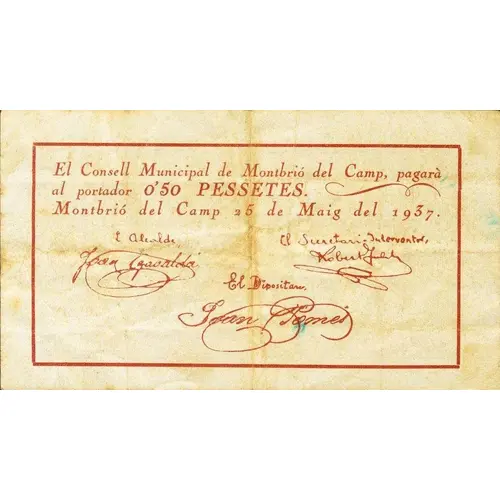 El Consell Municipal de Montbrió del Camp, pagarà
al portador 0'50 PESSETES.
Montbrió del Camp 25 de Maig del 1937.
L'Alcalde, El Secretari-Interventor,
Joan Robert
El Dipositari,
Joan